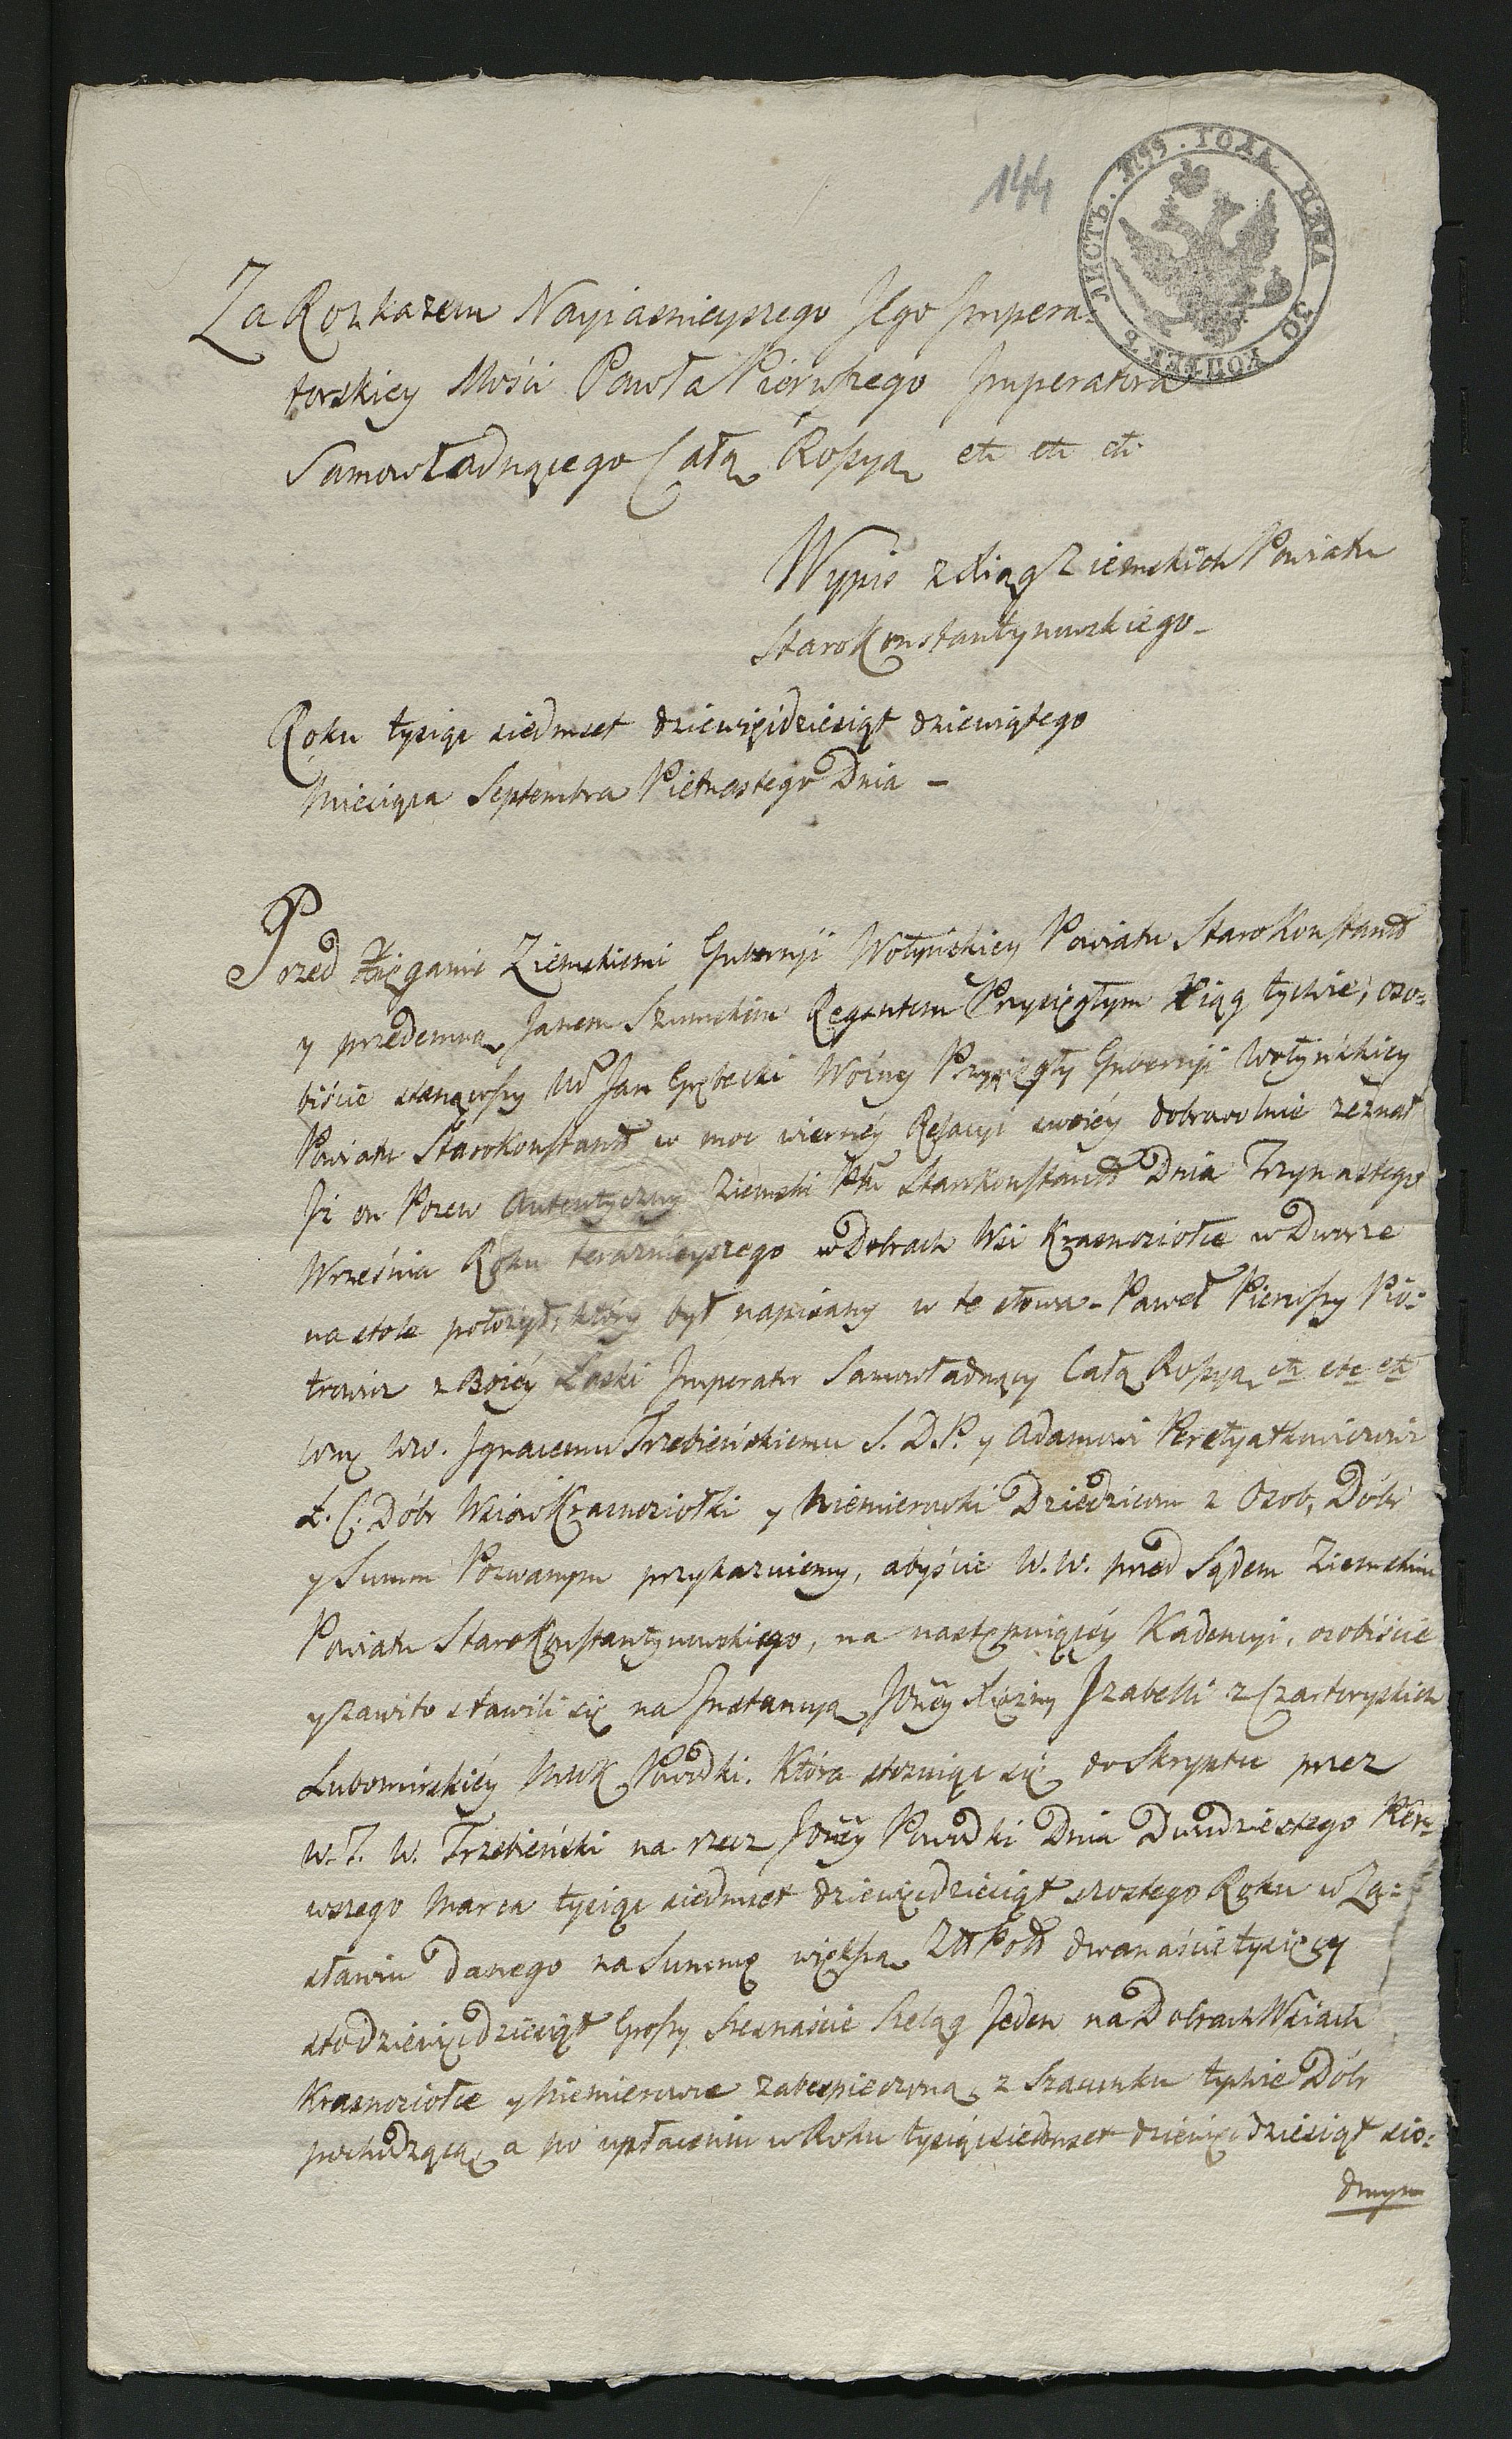 144
ЛИСТЪ. 1799. ГОДА ЦѢНА 30 КОПѢЕКЪ
Za Rozkazem Nayiasnieyszego Jego Impera=
torskiey Mości Pawła Pierwszego Imperatora
Samowładnącego Całą Rossyą etc etc etc
Wypis z Xiąg Ziemskich Powiatu
StaroKonstantynowskiego_
Roku tysiąc siedmset dziewięćdziesiąt dziewiątego
Miesiąca Septembra Pietnastego Dnia –
Przed Xięgami Ziemskiemi Gubernji Wołyńskiey Powiatu StaroKonstantt
y przedemną Janem Szumskim Regentem Przysięgłym Xiąg tychże, oso=
biście stanąwszy Ur Jan Grębecki Woźny Przysięgły Gubernji Wołyńskiey
Powiatu StaroKonstantt w moc wierney Relacyi swoiey dobrowolnie zeznał
Iż on Pozew Autentyczny Ziemski Pttu StaroKonstantt Dnia Trzynastego
Września Roku teraznieyszego w Dobrach Wsi Krasnoziołce w Dworze
na stole położył, który był napisany w te słowa – Paweł Pierwszy Pio=
trowicz z Bożey Łaski Imperator Samowładnący Całą Rossyą etc etc etc
Wnż Ww. Ignacemu Trzebieńskiemu S. D. P. y Adamowi Peretyatkowiczowi
Ł. C. Dóbr Wsiów Krasnoziołki y Niemierowki Dziedzicom z Osob, Dóbr
y Summ Pozwanym przykazuiemy, abyście W. W. przed Sądem Ziemskim
Powiatu StaroKonstantynowskiego, na następuiącéy Kadencyi, osobiście
y zawito stawili się na Instancyą JOney Xiężny Izabelli z Czartoryskich
Lubomirskiéy Powodki. Która stosuiąc się do Skryptu przez
W. J. W. Trzebieński na rzecz JOney Powodki Dnia Dwudziestego Pier=
wszego Marca tysiąc siedmset dziewięćdziesiąt szostego Roku w Za=
sławiu danego na Summę większą Złł Poll dwanaście tysięcy
sto dziewięćdziesiąt Groszy szesnaście Szeląg Jeden na Dobrach Wsiach
Krasnoziołce y Niemierowce zabespieczoną, z Szacunku tychże Dóbr
pochodzącą, a po upłacaniu w Roku tysiąc siedmset dziewięćdziesiąt sio=
dmym